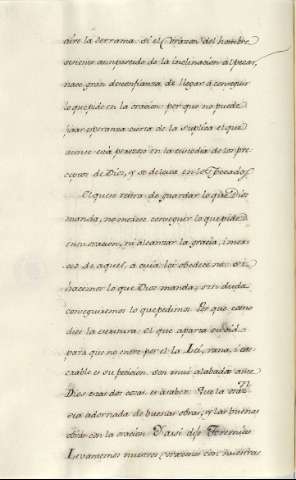 aire la derrama. Si el Corazon del hombre
se tiene aun partido de la inclinación á pecar,
nace gran desconfianza de llegar á conseguir
lo que pide en la oración: por que no puede
fijar esperanza cierta de la suplica el que
aun se está prostrado en la custodia de los pre-
ceptos de Dios, y se deleita en los Pecados.
El que se retira de guardar lo que Dios
manda, no merece conseguir lo que pide
en su oracion, ni alcanzar la gracia, i mer-
ced de aquel, a cuia lei obedece no: si
hacemos lo que Dios manda, sin duda
conseguiremos lo que pedimos. Por que como
dice la escritura: el que aparta su oido
para que no entre por el la Lei, vana, i exe-
crable es su peticion. son mui alabadas ante
Dios estas dos cosas. es á saber: Que la ora.on
sea adornada de buenas obras, y las buenas
obras con la oracion. Y asi dijo Jeremias:
Levantemos nuestros corazones con nuestras